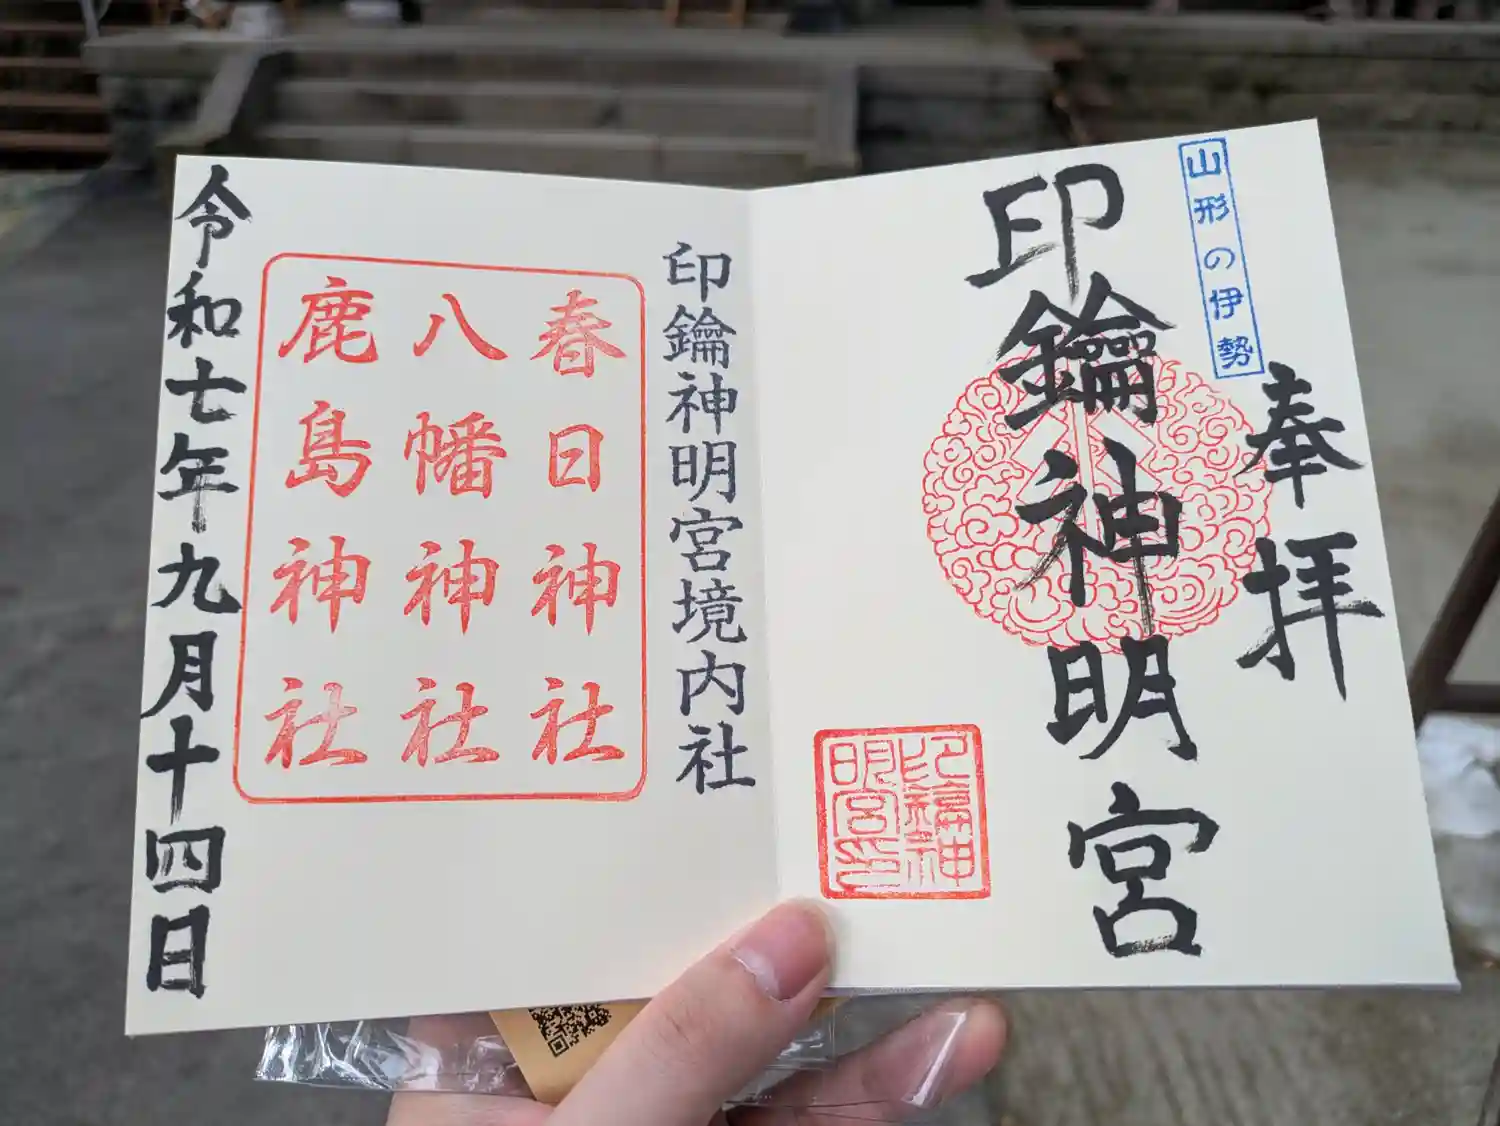 山形の伊勢
奉拝
印鑰神明宮
印鑰神明宮印
印鑰神明宮境内社
春日神社
八幡神社
鹿島神社
令和七年九月十四日